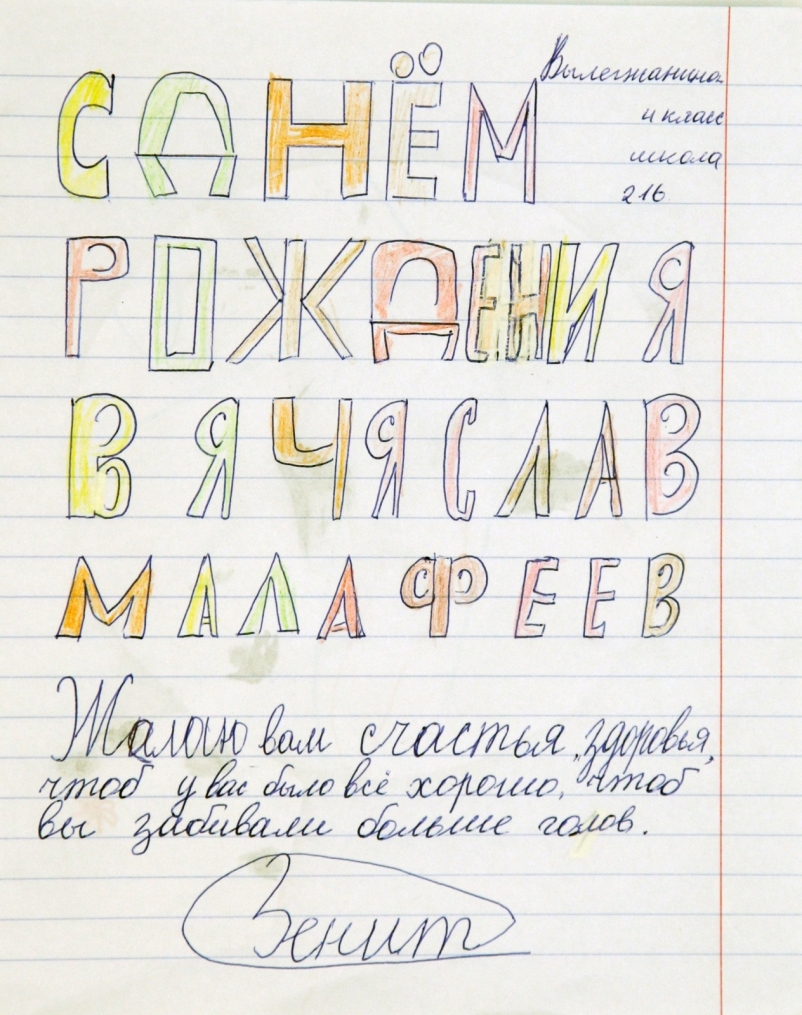 С ДНЁМ
Вылегжанина
4 класс
школа
216
РОЖДЕНИЯ
ВЯЧЯСЛАВ
МАЛАФЕЕВ
Жалаю вам счастья, здоровья,
чтоб у вас было всё хорошо, чтоб
вы забивали больше голов.
Зенит